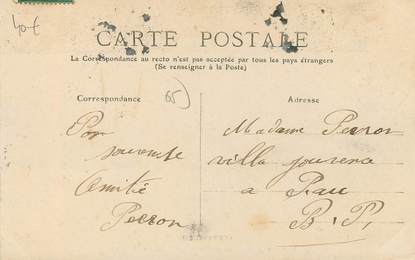 40€
CARTE POSTALE
La Correspondance au recto n'est pas acceptée par tous les pays étrangers
(Se renseigner à la Poste)
Correspondance
65
Adresse
Madame Perron
villa
a Pau
B. P.
Amitié
Perron